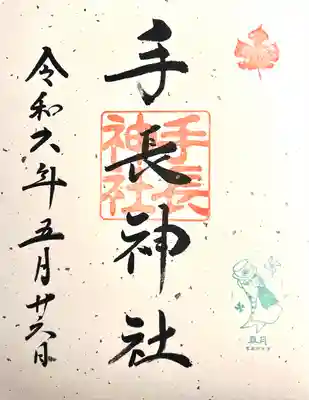 手長神社
手長
神社
令和六年五月廿六日
皐月